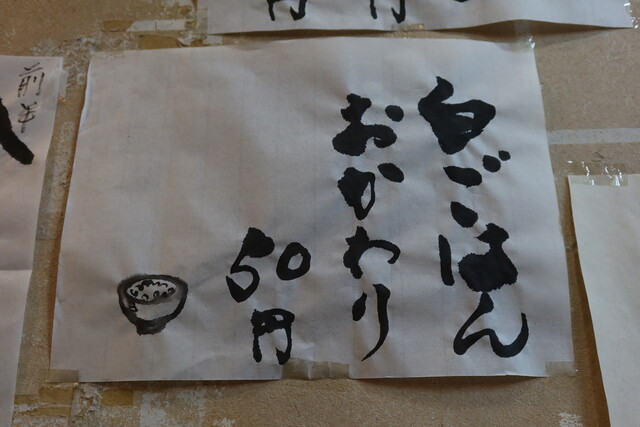 白ごはん
おかわり
50円
円
前半